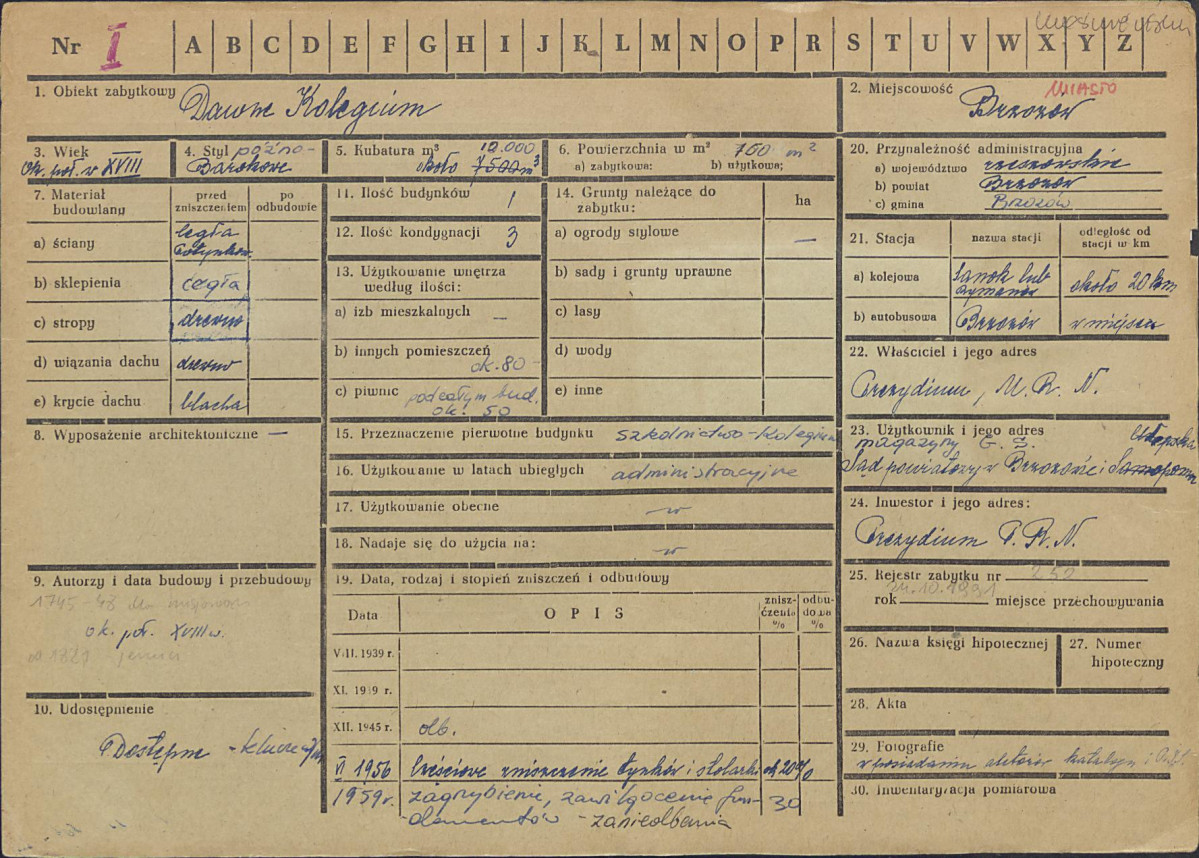 Nr I A B C D E F G H I J K L M N O P R S T U V W X Y Z
1. Obiekt zabytkowy Dawne Kolegium
2. Miejscowość MIASTO
Brzozów
3. Wiek
ok. poł. w XVIII
4. Styl późno-
Barokowe
5. Kubatura m³ 10.000
około 7500 m³
6. Powierzchnia w m² 700 m²
a) zabytkowa: b) użytkowa:
20. Przynależność administracyjna
a) województwo rzeszowskie
b) powiat Brzozów
c) gmina Brzozów
7. Materiał budowlany
przed zniszczeniem
po odbudowie
a) ściany cegła
b) sklepienia cegła
c) stropy drewno
d) wiązania dachu drewno
e) krycie dachu blacha
11. Ilość budynków 1
12. Ilość kondygnacji 3
13. Użytkowanie wnętrza
według ilości:
a) izb mieszkalnych —
b) innych pomieszczeń
ok. 80 -
c) piwnic pod całym bud.
ok. 50
14. Grunty należące do
zabytku:
ha
a) ogrody stylowe —
b) sady i grunty uprawne
c) lasy
d) wody
e) inne
21. Stacja
nazwa stacji
odległość od
stacji w km
a) kolejowa Sanok lub Rymanów około 20 km
b) autobusowa Brzozów w miejscu
22. Właściciel i jego adres
Prezydium, M. R. N.
8. Wyposażenie architektoniczne —
15. Przeznaczenie pierwotne budynku szkolnictwo-kolegium
16. Użytkowanie w latach ubiegłych administracyjne
17. Użytkowanie obecne —w
18. Nadaje się do użycia na: —w
23. Użytkownik i jego adres Chłopska
magazyny G. S.
Sąd powiatowy w Brzozowie i Samopom
24. Inwestor i jego adres:
Prezydium P. R. N.
9. Autorzy i data budowy i przebudowy
1745 48 dla
ok. poł. XVIII w.
19. Data, rodzaj i stopień zniszczeń i odbudowy
Data
O P I S
znisz-
czenia
%
odbu-
dowa
%
VIII. 1939 r.
XI. 1939 r.
XII. 1945 r. olb.
VI 1956 Częściowe zniszczenie tynków i stolarki ok 20%
1959 r. zagrzybienie, zawilgocenie fun-
damentów - zaniedbania 30
25. Rejestr zabytku nr 252
24.10.1991
rok miejsce przechowywania
26. Nazwa księgi hipotecznej
27. Numer
hipoteczny
28. Akta
10. Udostępnienie
Dostępne - klucze
29. Fotografie
w posiadaniu
30. Inwentaryzacja pomiarowa